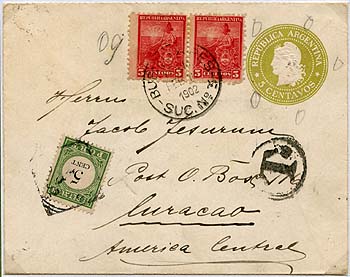 09
REPUBLICA ARGENTINA
5 CENTAVOS
REPUBLICA ARGENTINA
5 CENTAVOS
REPUBLICA ARGENTINA
5 CENTAVOS
1902
SUC. Nº
Herren
Jacob Jesurun
Post O. Box
Curacao
America Central
T
5
CENT